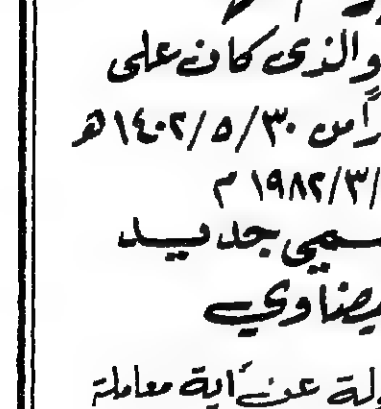 والذي كان على
راً من ١٤٠٢/٥/٣٠ هـ
/١٩٨٢/٣ م
سمي جديد
يضاوي
ولة عن أية معاملة